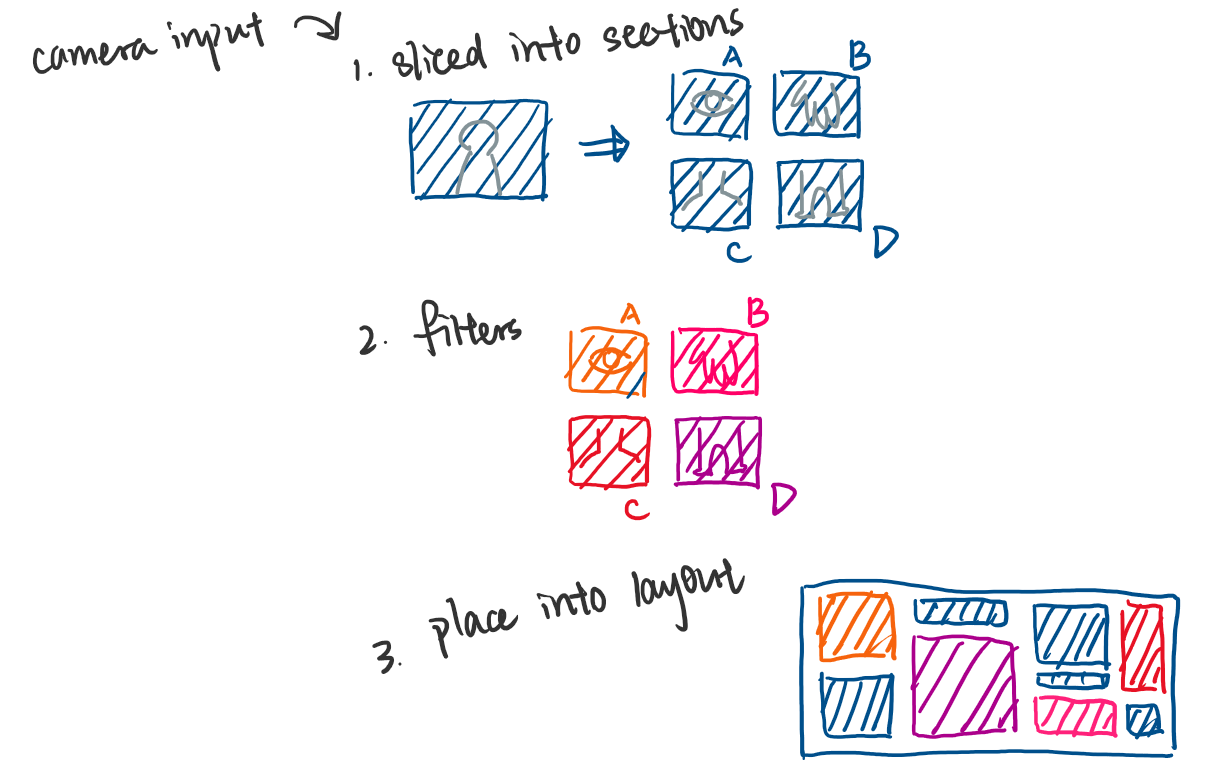 camera input
1. sliced into sections
A B
C D
2. filters
A B
C D
3. place into layout